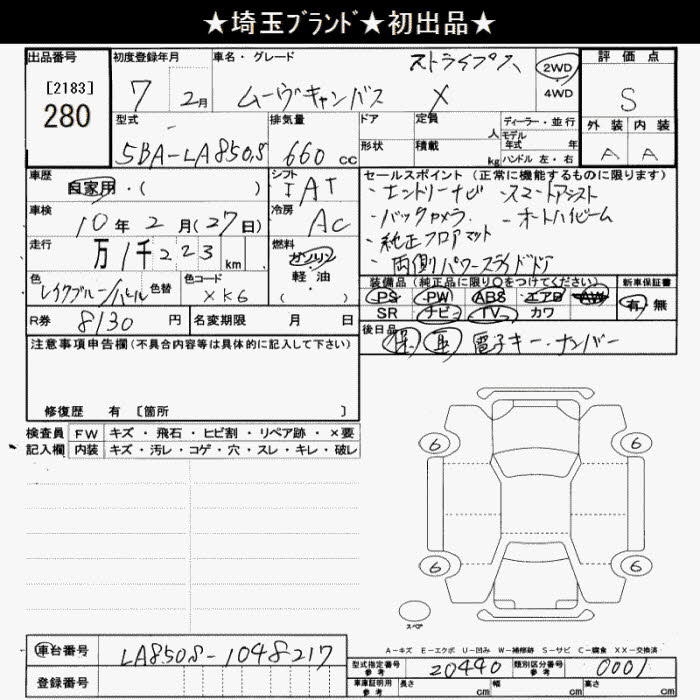 ★埼玉ブランド★初出品★
出品番号 初度登録年月 車名・グレード ストライプス 2WD 評価点
[2183] 7 2月 ムーヴキャンバス X ・ 4WD S
280
型式 排気量 ドア 定員 人 ディーラー・並行 外装 内装
5BA-LA850S 660cc 形状 積載 kg モデル年式 年 A A
ハンドル 左・右
車歴 自家用・( ) シフト IAT セールスポイント(正常に機能するものに限ります)
車検 10年2月(27日) 冷房 AC ・エントリーナビ ・スマートアシスト
・バックカメラ ・オートハイビーム
・純正フロアマット
走行 万1千223km 燃料 ガソリン・軽・油・( ) ・両側パワースライドドア
色 レイクブルー/パール 色替 色コード XK6
装備品(純正品に限り○をつけてください) 新車保証書
PS PW ABS エアB AW 有・無
SR ナビ TV カワ
R券 8130円 名変期限 月 日
後日品 電子キー・ナンバー
注意事項申告欄(不具合内容等は具体的に記入して下さい)
修復歴 有 〔箇所 〕
検査員 FW キズ・飛石・ヒビ割・リペア跡・×要
記入欄 内装 キズ・汚レ・コゲ・穴・スレ・キレ・破レ
6 6
6 6
スペア
A-キズ E-エクボ U-凹み W-補修跡 S-サビ C-腐食 XX-交換済
車台番号 LA850S-1048217
登録番号
型式指定番号 参考 20440 類別区分番号 参考 0001
車庫証明用 参考 長さ cm 幅 cm 高さ cm